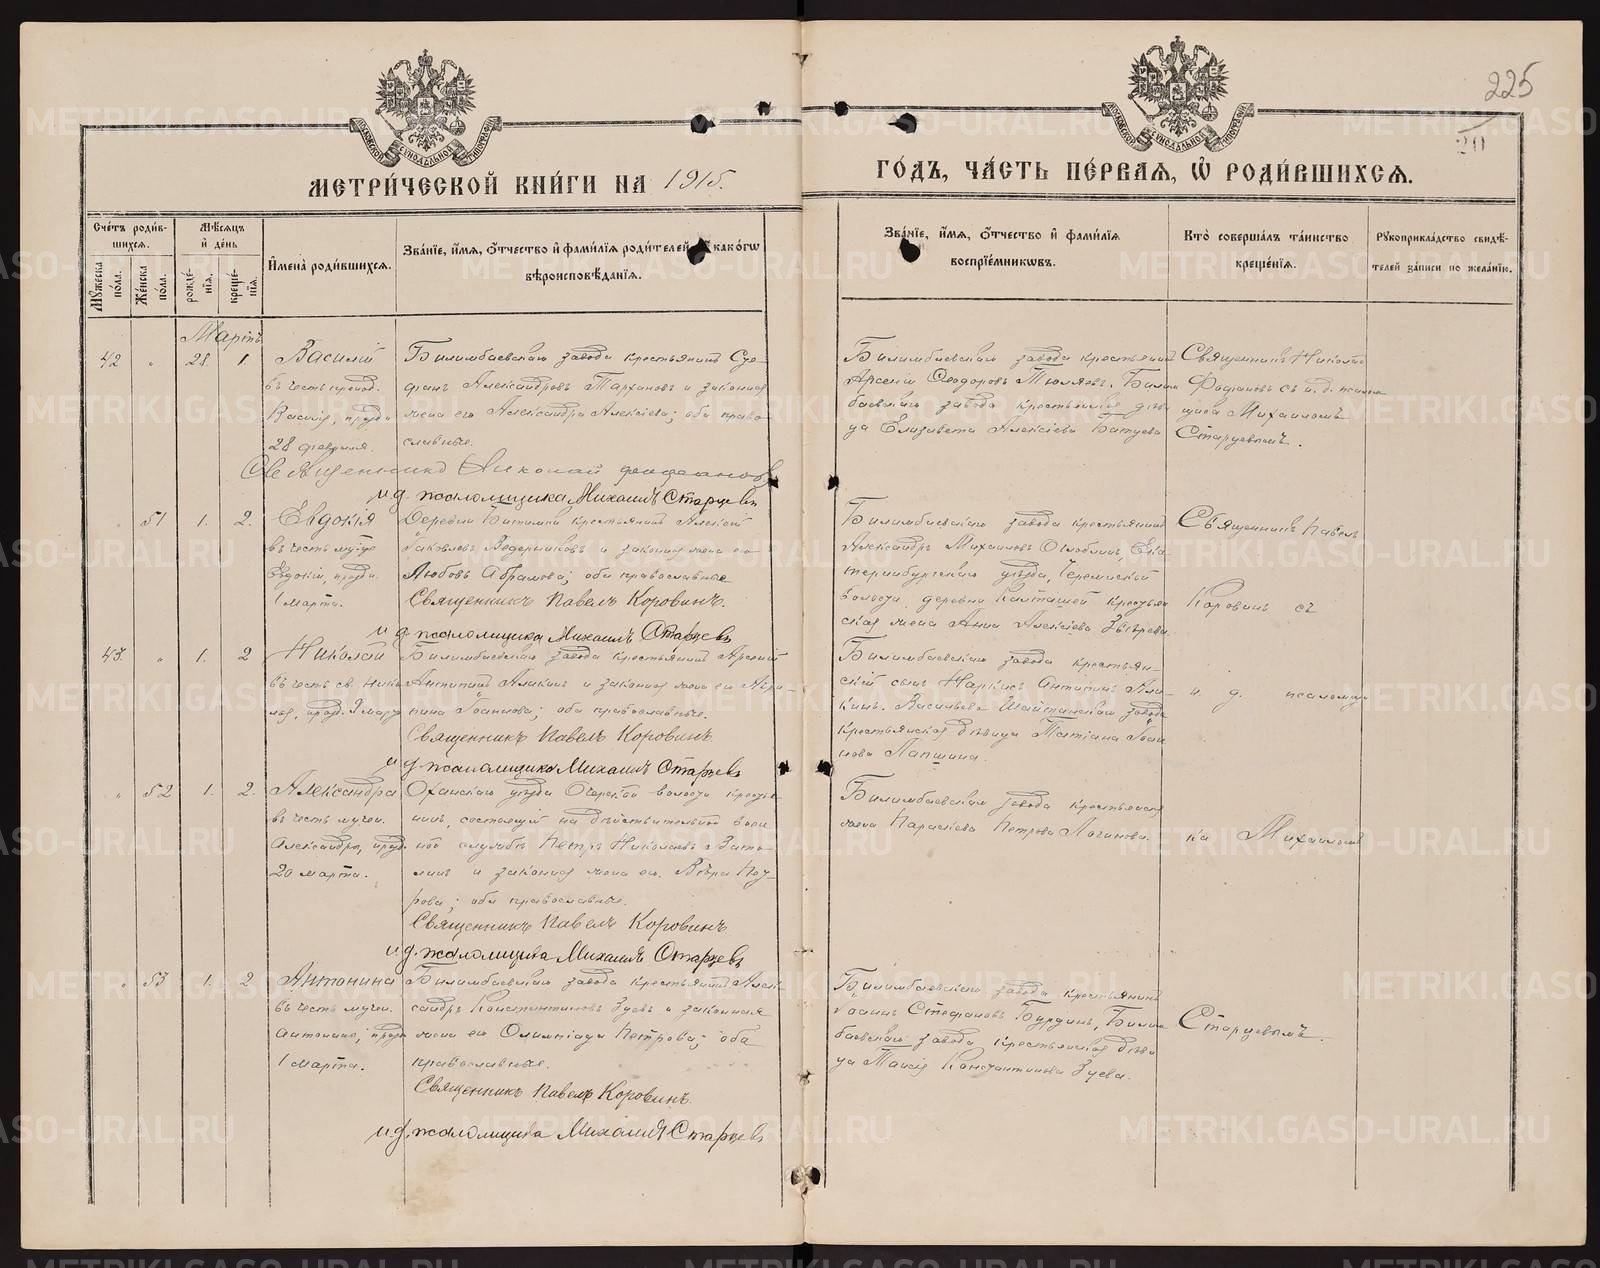 225
20
МЕТРИ́ЧЕСКОЙ КНИ́ГИ НА 1915.
ГО́ДЪ, ЧА́СТЬ ПЕ́РВАѦ, Ѡ҆ РОДИ́ВШИХСѦ.
Сче́тъ роди́в-
шихсѧ.
Мѣ́сѧцъ
и҆ де́нь
Мꙋ́жеска
по́ла.
Же́нска
по́ла.
рожде́-
нїѧ.
креще́-
нїѧ.
И҆мена̀ роди́вшихсѧ.
Зва́нїе, и҆́мѧ, ѻ҆́тчество и҆ фами́лїѧ роди́телей, и҆ како́гѡ
вѣроисповѣ́данїѧ.
Зва́нїе, и҆́мѧ, ѻ҆́тчество и҆ фами́лїѧ
воспрїе́мниковъ.
Кто̀ соверша́лъ та́инство
креще́нїѧ.
Рꙋкоприкла́дство свидѣ́-
телей за́писи по жела́нїю.
Мартъ
42 " 28. 1. Василій
въ честь препод.
Василія, празд.
28 февраля.
Билимбаевскаго завода крестьянинъ Сте-
фанъ Александровъ Тархановъ и законная
жена его Александра Алексіева; оба право-
славные.
Билимбаевскаго завода крестьянинъ
Арсеній Ѳеодоровъ Тюляевъ. Билим-
баевскаго завода крестьянская дѣви-
ца Елизавета Алексіева Батуева
Священникъ Николай
Фодіановъ съ и. д. псалом-
щика Михаиломъ
Старцевымъ.
Священникъ Николай
и д. псаломщика Михаилъ Старцевъ
51 1. 2. Евдокія
въ честь муче
Евдокіи, празд.
1 марта.
Деревни Битимки крестьянинъ Алексій
Іаковлевъ Ведерниковъ и законная жена его
Любовь Абрамова; оба православные
Священникъ Павелъ Коровинъ.
и д. псаломщика Михаилъ Старцевъ
Билимбаевскаго завода крестьянинъ
Александръ Михаиловъ Оглоблинъ, Ека-
теринбургскаго уѣзда,
волости деревни Калташей крестьян-
ская жена Анна Алексіева Звѣрева.
Священникъ Павелъ
Коровинъ съ
43. " 1. 2 Николай
въ честь св. Нико-
лая, празд. 9 мару
Билимбаевскаго завода крестьянинъ Арсеній
Антипинъ Аликинъ и законная жена его Агри-
пина Іоаннова; оба православные.
Священникъ Павелъ Коровинъ
и д. псаломщика Михаилъ Старцевъ
Билимбаевскаго завода крестьян-
скій сынъ Наркисъ Антипинъ Али-
кинъ. Васильево Шайтанскаго завода
крестьянская дѣвица Татіана Іоан-
нова Лапшина.
и. д. псаломщи
" 52 1. 2. Александра
въ честь мучен.
Александры, празд.
20 марта.
Оханскаго уѣзда Очерской волости крестья-
нинъ, состоящій на дѣйствительной воен-
ной службѣ Петръ Николаевъ
и законная жена его Вѣра
оба православные.
Священникъ Павелъ Коровинъ
и д. псаломщика Михаилъ Старцевъ
Билимбаевскаго завода крестьянская
жена Параскева Петрова Логинова.
ка Михаиломъ
" 53 1. 2 Антонина
въ честь мучен.
Антонины, празд
1 марта.
Билимбаевскаго завода крестьянинъ Алек-
сандръ Константиновъ Зуевъ и законная
жена его Олимпіада Петрова; оба
православные.
Священникъ Павелъ Коровинъ.
и д. псаломщика Михаилъ Старцевъ
Билимбаевскаго завода крестьянинъ
Іоаннъ Стефановъ Бурдинъ, Билим-
баевскаго завода крестьянская дѣви-
ца Таисія Константинова Зуева.
Старцевымъ.
METRIKI.GASO-URAL.RU